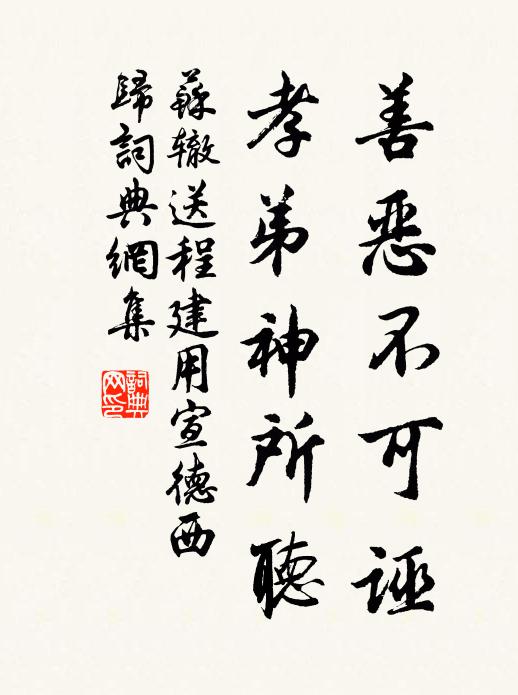 善惡不可誣
孝弟神所聽
蘇轍送程建用宣德西
歸詞典網集
詞典網印